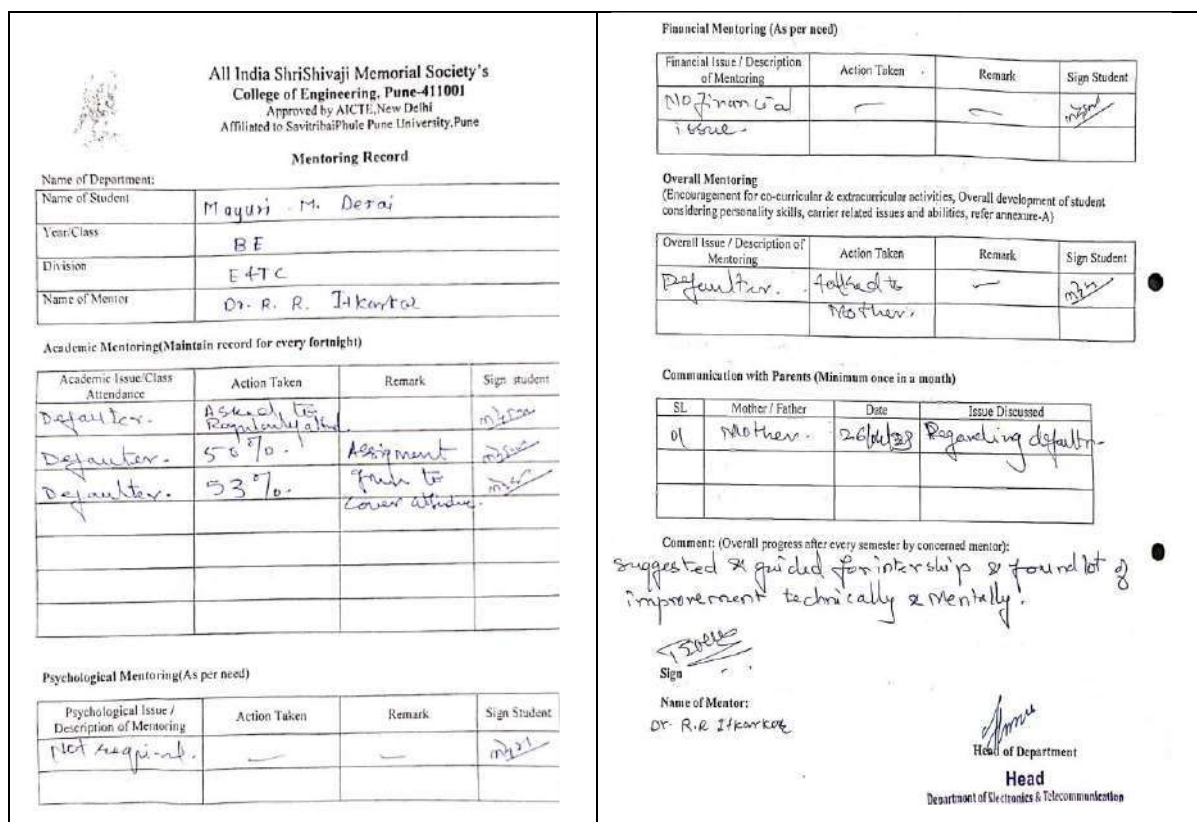 All India ShriShivaji Memorial Society's
College of Engineering, Pune-411001
Approved by AICTE,New Delhi
Affiliated to SavitribaiPhule Pune University,Pune
Mentoring Record
Name of Department:
Name of Student Mayuri M. Desai
Year/Class BE
Division E&TC
Name of Mentor Dr. R. R. Itkarkar
Academic Mentoring(Maintain record for every fortnight)
Academic Issue/Class Attendance Action Taken Remark Sign student
Defaulter. Asked to
Regularly attend.
Defaulter. 50%. Assignment
Defaulter. 53%. to
cover
Psychological Mentoring(As per need)
Psychological Issue / Description of Mentoring Action Taken Remark Sign Student
Not required. — —
Financial Mentoring (As per need)
Financial Issue / Description of Mentoring Action Taken Remark Sign Student
No financial — —
issue.
Overall Mentoring
(Encouragement for co-curricular & extracurricular activities, Overall development of student
considering personality skills, carrier related issues and abilities, refer annexure-A)
Overall Issue / Description of Mentoring Action Taken Remark Sign Student
Defaulter. talked to —
Mother.
Communication with Parents (Minimum once in a month)
SL Mother / Father Date Issue Discussed
01 Mother. Regarding
Comment: (Overall progress after every semester by concerned mentor):
suggested & guided for intership & found lot of
improvement technically & Mentally.
Sign
Name of Mentor:
Dr. R.R Itkarkar
Head of Department
Head
Department of Electronics & Telecommunication